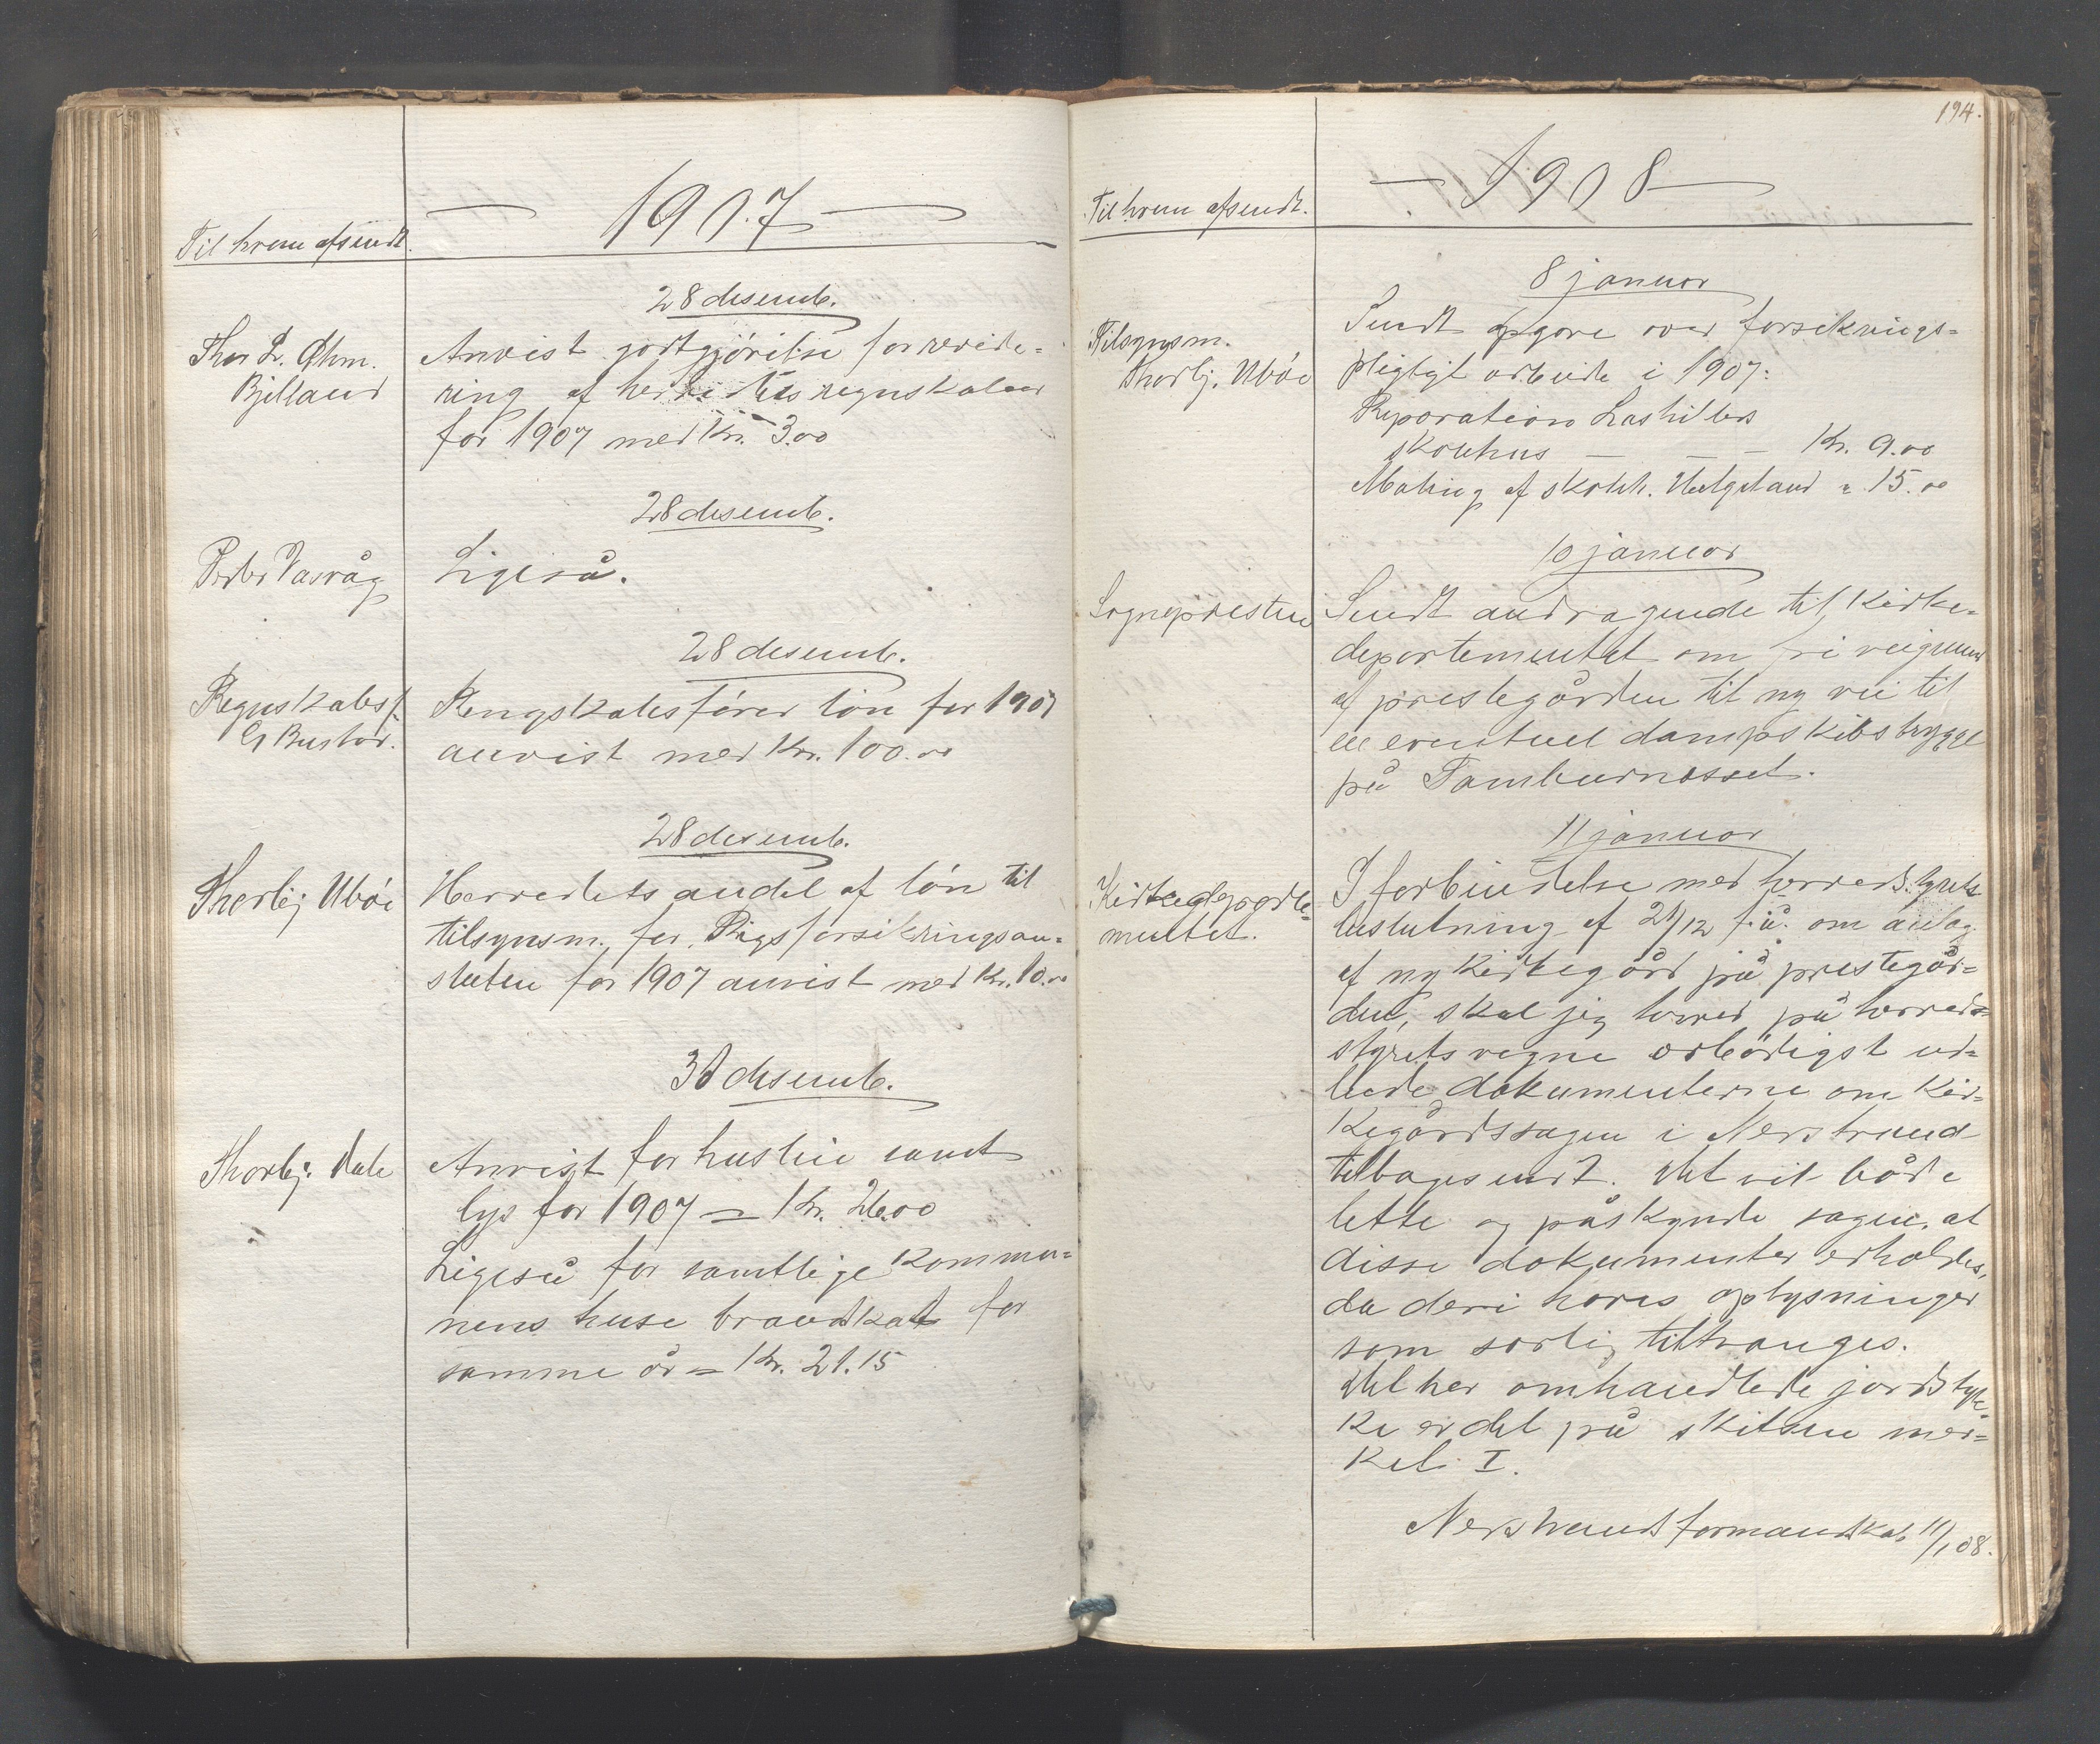 1907
Til hvem afsendt.
28 desemb.
Thor L. Ohm.
Bjelland
Anvist godtgjörelse for revide=
ring af herredets regnskaber
for 1907 med Kr. 3.00
28 desemb.
Peder Vasvåg
Ligeså.
28 desemb.
Regnskabsf.
G Bustad.
Rengskabsförer lön for 1907
anvist med Kr. 100.00
28 desemb.
Thorbj Uböe
Herredets andel af lön til
tilsynsm. for Rigsforsikringsan=
stalten for 1907 anvist med Kr. 10.00
31 desemb.
Thorbj. Dale
Anvist for husleie samt
lys for 1907 = Kr. 26.00
Ligeså for samtlige kommu=
nens huse brandskat for
samme år = Kr. 21.15
194.
— 1908 —
Til hvem afsendt.
8 januar
Tilsynsm.
Thorbj. Uböe
Sendt opgave over forsikrings=
pligtigt arbeide i 1907:
Reparation Lashillers
skolehus — — — Kr. 9.00
Maling af skoleh. Helgeland " 15.00
10 januar
Sognepresten
Sendt andragende til Kirke=
departementet om fri veigrund
af prestegården til ny vei til
en eventuel dampskibsbrygge
på Tamburnesset.
11 januar
Kirkedeparte=
mentet.
I forbindelse med herredstyrets
beslutning af 21/12 f.å. om anlæg
af ny kirkegård på prestegår=
den, skal jeg herved på herreds=
styrets vegne ærbödigst ud=
bede dokumenterne om kir=
kegårdssagen i Nerstrand
tilbagesendt. Det vil både
lette og påskynde sagen, at
disse dokumenter erholdes,
da deri haves oplysninger
som sarlig tiltranges.
Det her omhandlede jordstyk=
ke er det på skitsen mer=
ket I.
Nerstrands formandskab 11/1 08.